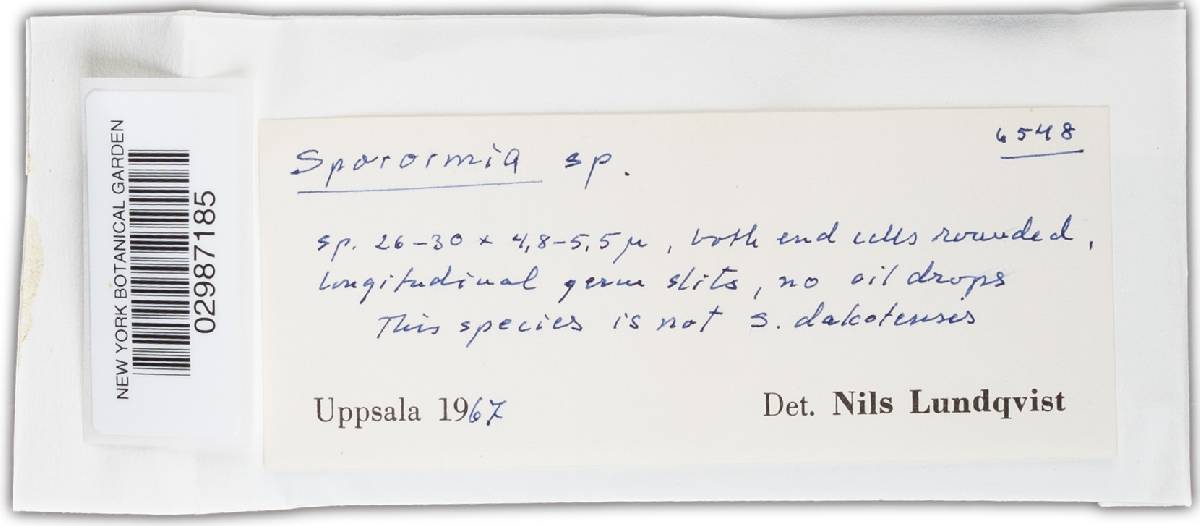 NEW YORK BOTANICAL GARDEN
02987185
6548
Sporormia sp.
sp. 26–30 × 4,8–5,5 µ, both end cells rounded,
longitudinal germ slits, no oil drops
This species is not S. dakotensis
Uppsala 1967
Det. Nils Lundqvist